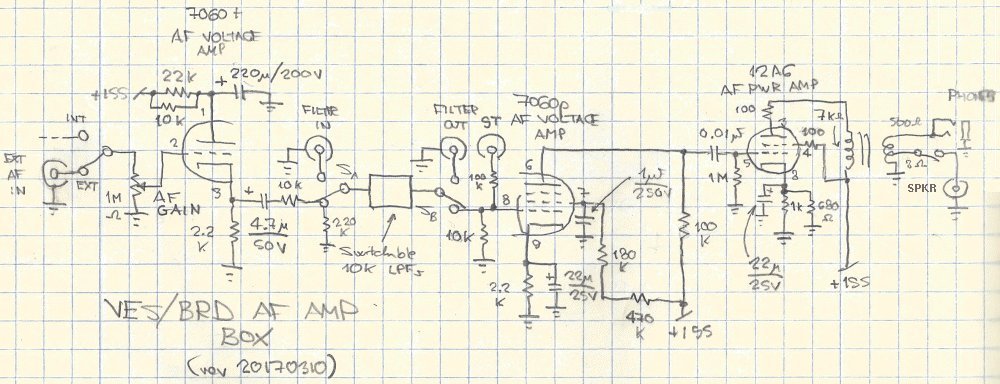 7060t
AF VOLTAGE
AMP
22K
220µ/200V
+155
10K
1
INT
2
EXT
AF
IN
EXT
1M
Ω
AF
GAIN
3
2.2
K
4.7µ
50V
10K
FILTER
IN
220
K
SA
SB
Switchable
10K LPFs
FILTER
OUT
ST
100
K
10K
7060p
AF VOLTAGE
AMP
6
8
7
9
1µ
250V
2.2
K
22µ
25V
180
K
470
K
100
K
+155
0.01µ
1M
12A6
AF PWR AMP
100
3
5
4
8
100
7KΩ
22µ
25V
1K
680
Ω
+155
500Ω
3Ω
PHONES
SPKR
VE5/BRD AF AMP
BOX
(rev 20170310)